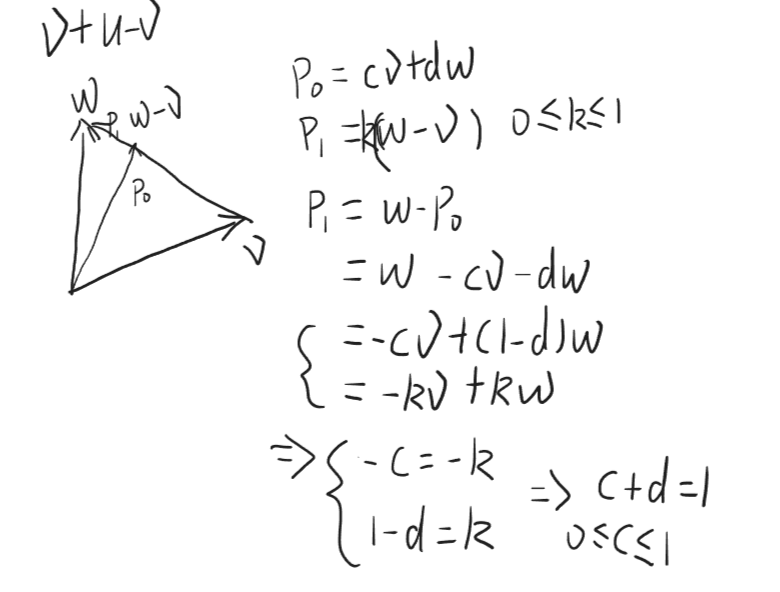 v+u-v
w
P₁ w-v
P₀
v
P₀ = cv+dw
P₁ = k(w-v) 0≤k≤1
P₁ = w-P₀
= w - cv - dw
{ = -cv+(1-d)w
= -kv+kw
⇒ { -c = -k ⇒ c+d=1
1-d = k 0≤c≤1